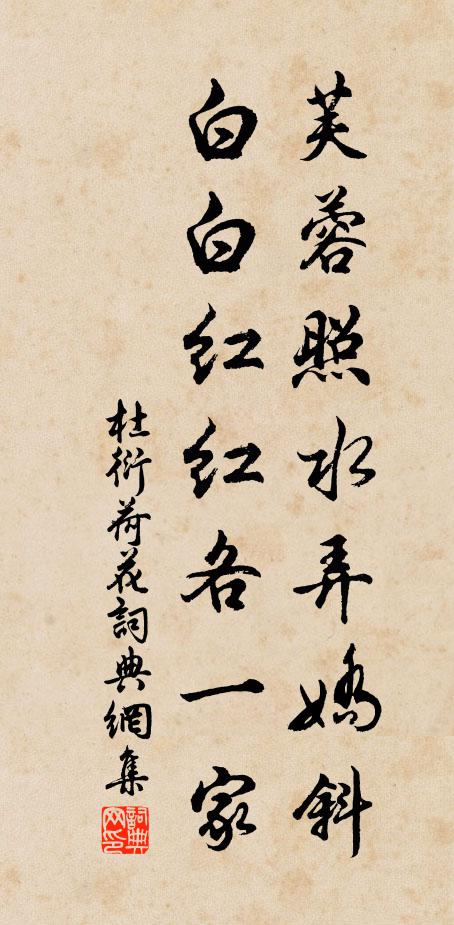 芙蓉照水弄嬌斜
白白紅紅各一家
杜衍荷花詞典網集
詞典網印